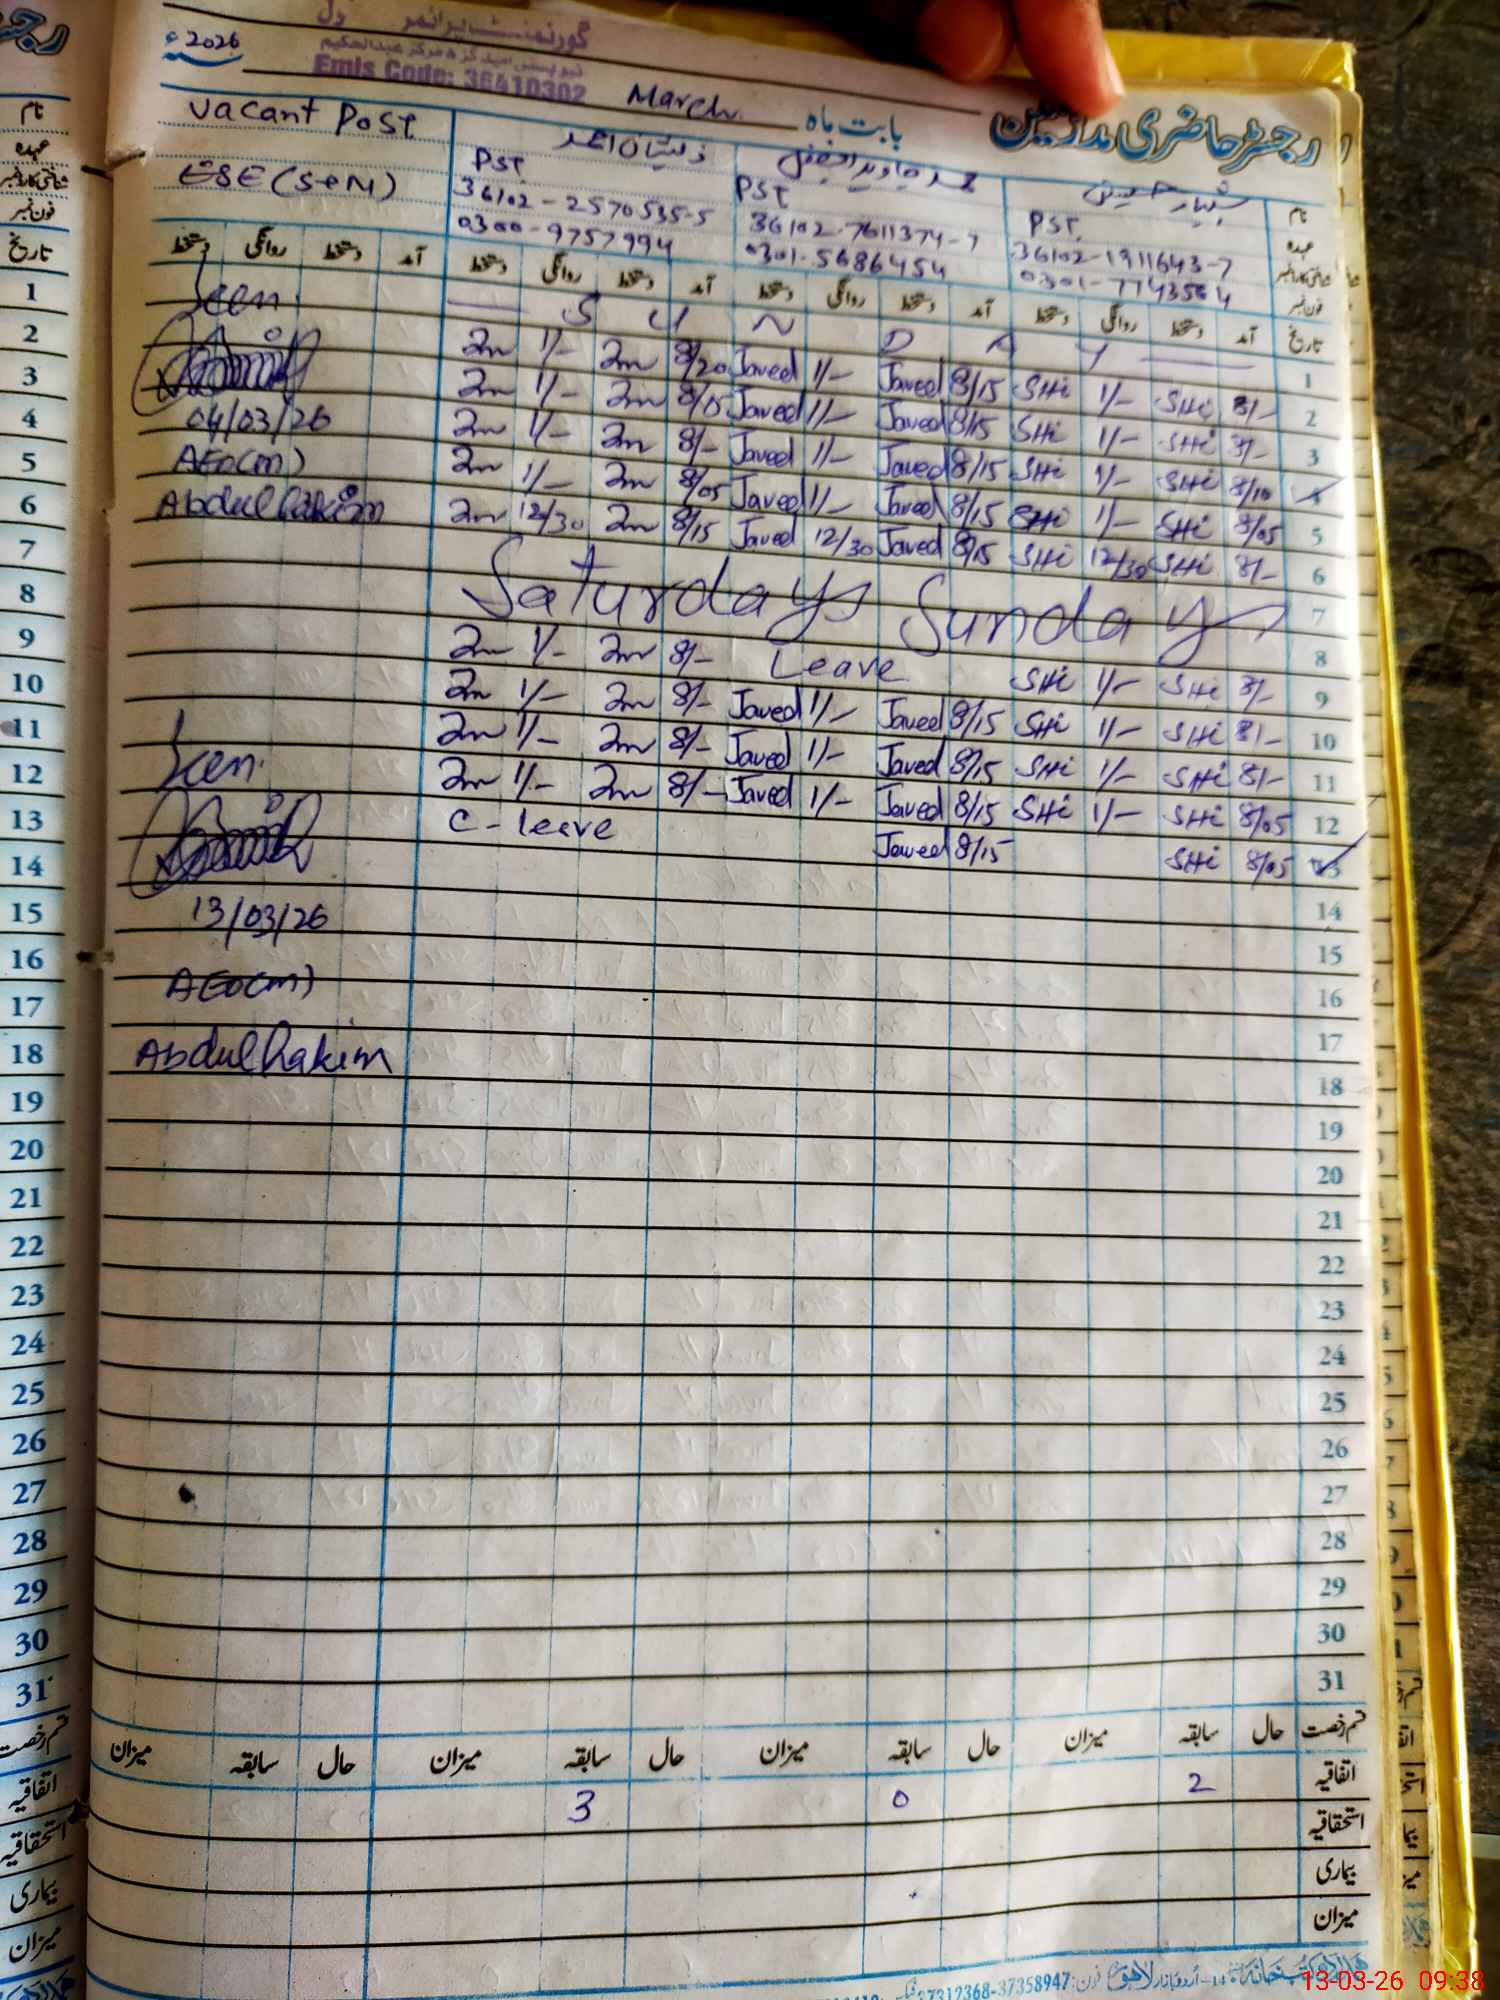 2026ء
گورنمنٹ پرائمری
Emis Code: 36410302
March بابت ماہ
رجسٹر حاضری مدرسین
Vacant Post
ESE (SEN)
ذیشان احمد
PST
36102-2570535-5
0300-9757994
PST
36102-7611374-7
0301-5686454
PST
36102-1911643-7
0301-7743564
نام
عہدہ
شناختی کارڈ نمبر
فون نمبر
تاریخ آمد دستخط روانگی دستخط آمد دستخط روانگی دستخط آمد دستخط روانگی دستخط آمد دستخط روانگی دستخط
1 S U N D A Y
2 1/- 8/20 Javed 1/- Javed 8/15 SHi 1/- SHi 8/-
3 1/- 8/15 Javed 1/- Javed 8/15 SHi 1/- SHi 8/-
4 1/- 8/- Javed 1/- Javed 8/15 SHi 1/- SHi 8/10
5 1/- 8/05 Javed 1/- Javed 8/15 SHi 1/- SHi 8/05
6 12/30 8/15 Javed 12/30 Javed 8/15 SHi 12/30 SHi 8/-
7
8 Saturday Sunday
9 1/- 8/- Leave SHi 1/- SHi 8/-
10 1/- 8/- Javed 1/- Javed 8/15 SHi 1/- SHi 8/-
11 1/- 8/- Javed 1/- Javed 8/15 SHi 1/- SHi 8/-
12 1/- 8/- Javed 1/- Javed 8/15 SHi 1/- SHi 8/05
13 C-leave Javed 8/15 SHi 8/05
Seen
04/03/26
AEO(M)
Abdul Hakim
Seen
13/03/26
AEO(M)
Abdul Hakim
14
15
16
17
18
19
20
21
22
23
24
25
26
27
28
29
30
31
قسم رخصت حال سابقہ میزان حال سابقہ میزان حال سابقہ میزان حال سابقہ میزان
اتفاقیہ 2 0 3
استحقاقیہ
بیماری
میزان
اردو بازار لاہور فون: 37312368-37358947
13-03-26 09:38